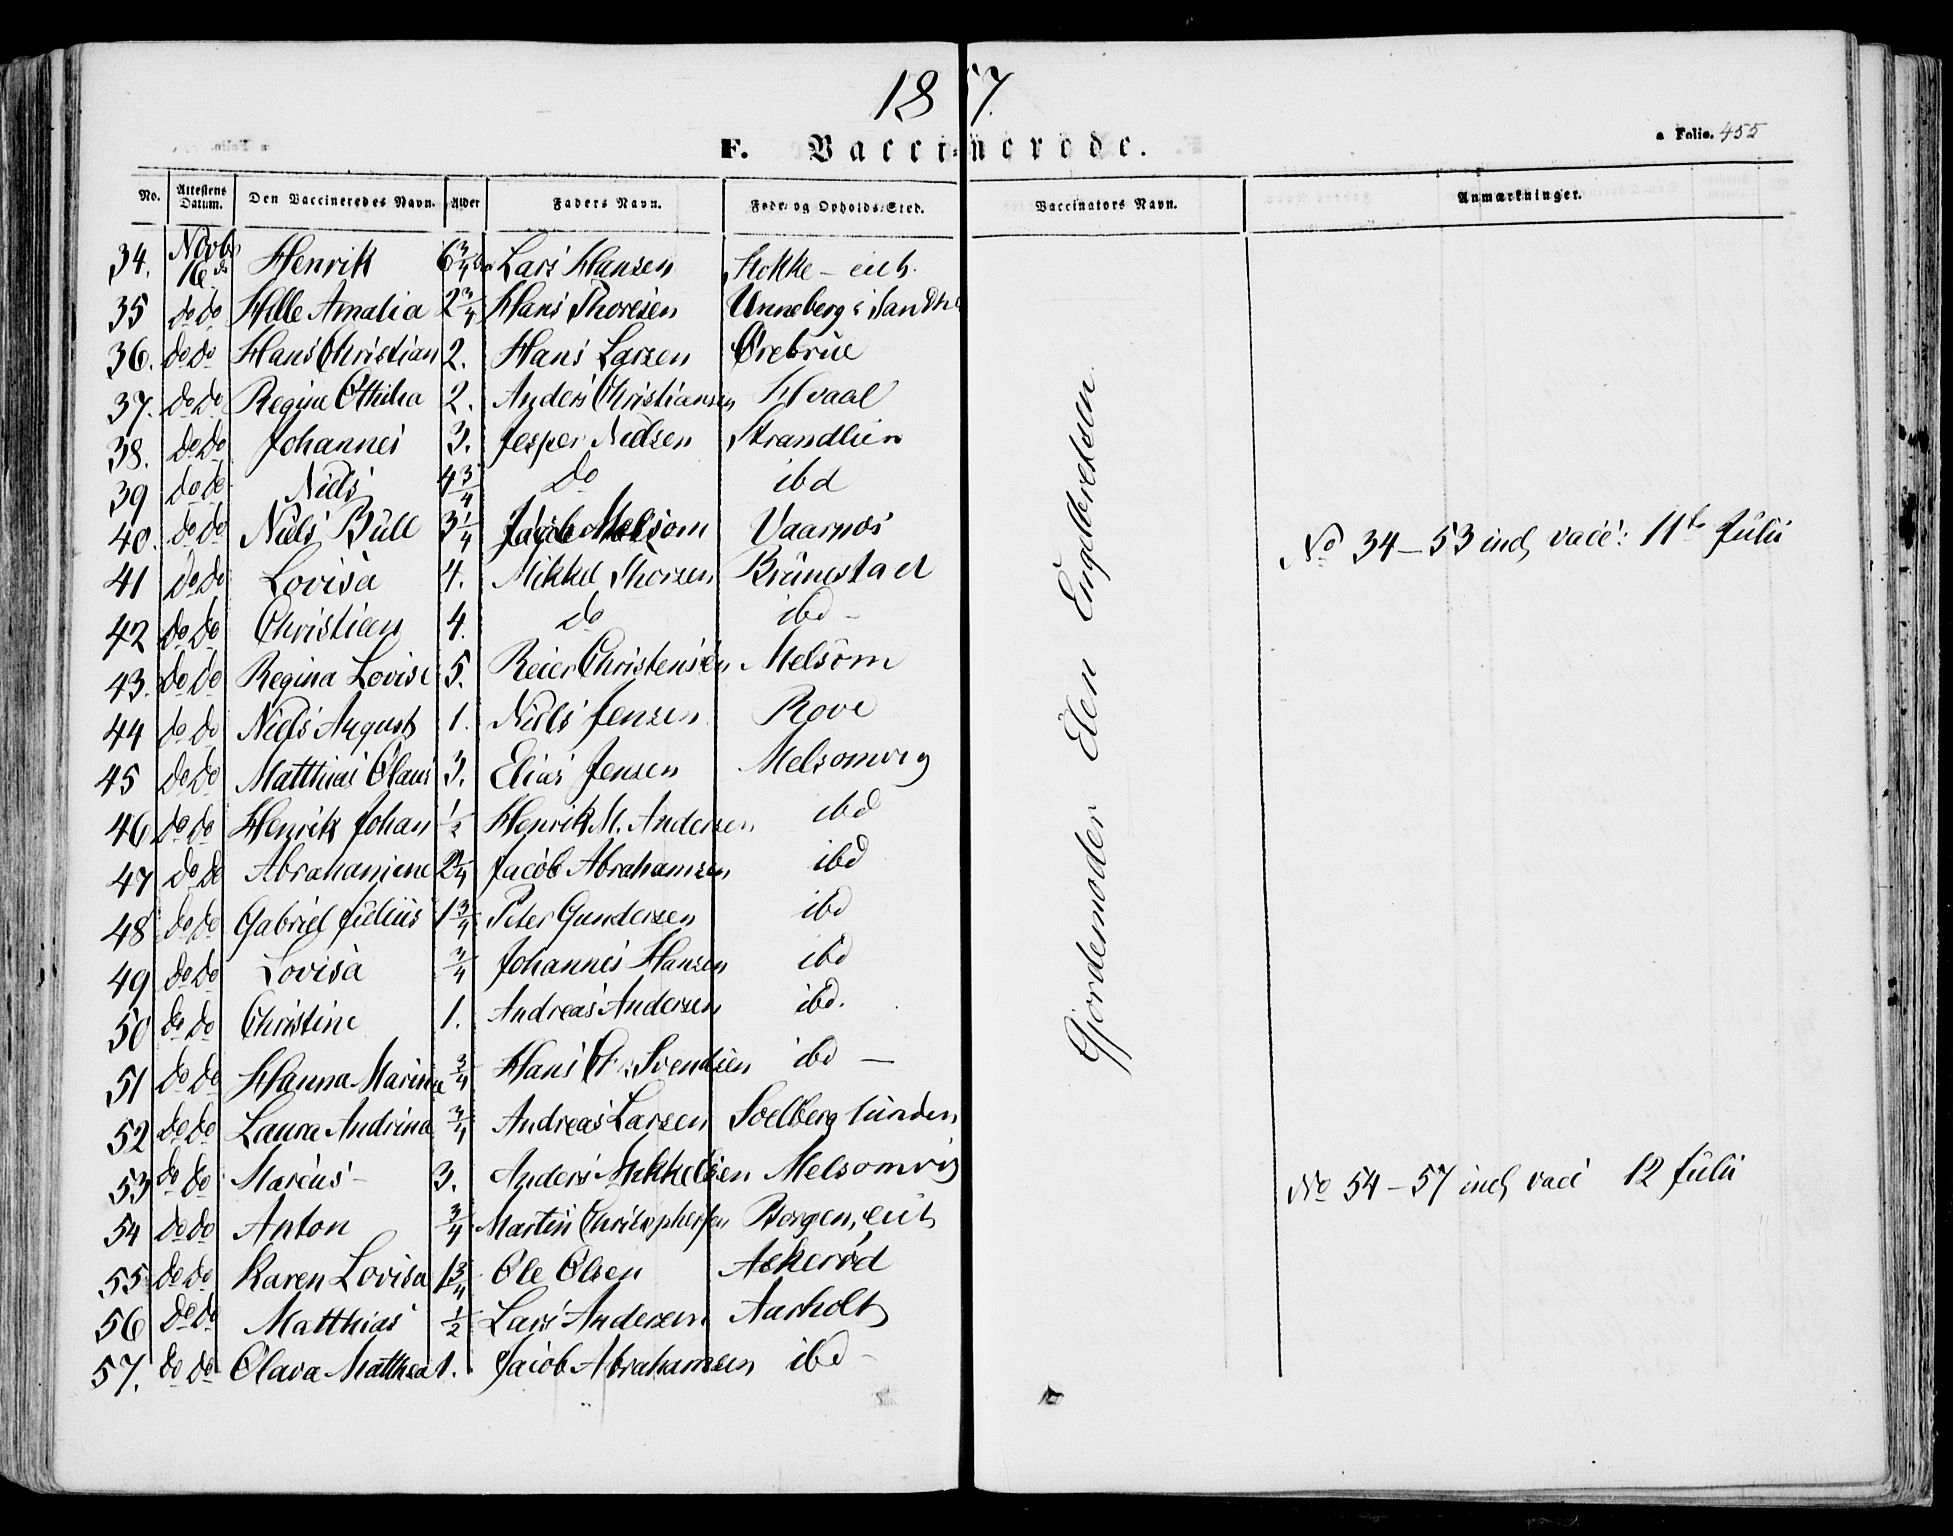 1857.
F. Vaccinerede.
a Folio. 455
No. Attestens Datum. Den Vaccineredes Navn. Alder Faders Navn. Føde- og Opholds-Sted. Vaccinators Navn. Anmærkninger.
34. Novbr 16 Henrik 6 3/4 Lars Hansen Stokke
35 do do Helle Amalia 2 3/4 Hans Thoresen Unneberg i Sandh
36. do do Hans Christian 2. Hans Larsen Ørebrue
37. do do Regine Othilia 2. Anders Christiansen Hvaal
38. do do Johannes 3. Jesper Nielsen Strandlien
39 do do Niels 4 3/4 do ibd
40. do do Niels Bull 3 1/4 Jacob Melsom Vaarnes
41 do do Lovisa 4. Mikkel Thorsen Brunestad
42 do do Christian 4. do ibd -
43. do do Regina Lovise 5. Reier Christensen Melsom
44 do do Niels August 1. Niels Jensen Rove
45 do do Matthias Olaus 3. Elias Jensen Melsomvig
46 do do Henrik Johan 1/2 Henrik M. Andersen ibd
47 do do Abrahamine 2 1/4 Jacob Abrahamsen ibd
48 do do Gabriel Julius 1 3/4 Peter Gundersen ibd
49 do do Lovisa 3/4 Johannes Hansen ibd
50 do do Christine 1. Andreas Andersen ibd.
51 do do Hanna Marina 3/4 Hans Svendsen ibd —
52 do do Laura Andrina 3/4 Andreas Larsen Soelberg lunden
53 do do Marcus - 3. Anders Mikkelsen Melsomvig
54 do do Anton 3/4 Martin Christophersen Borgen,
55 do do Karen Lovisa 1 3/4 Ole Olsen Askerød
56 do do Matthias 1/2 Lars Andersen Aarholt
57. do do Olava Matthea 1. Jacob Abrahamsen ibd -
Gjordemoder Elen Engelbretsen
No 34 – 53 incl vacc: 11te Julii
No 54 – 57 incl vacc 12 Julii